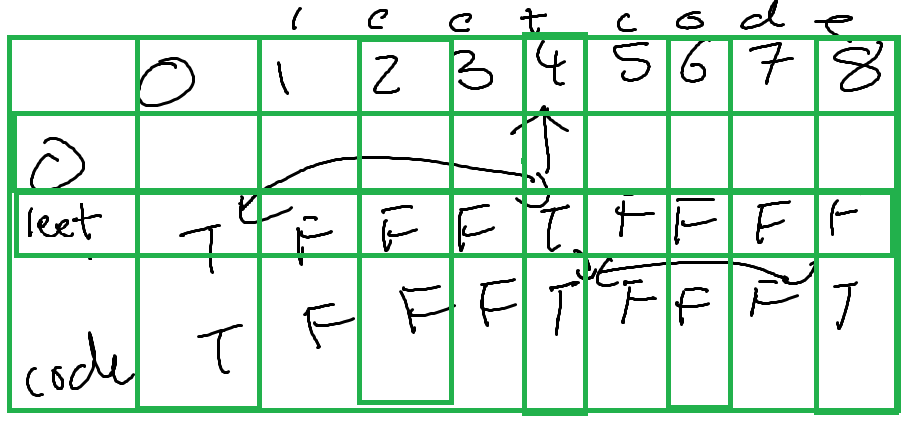 l e e t c o d e
0 1 2 3 4 5 6 7 8
0
leet T F F F T F F F F
code T F F F T F F F T